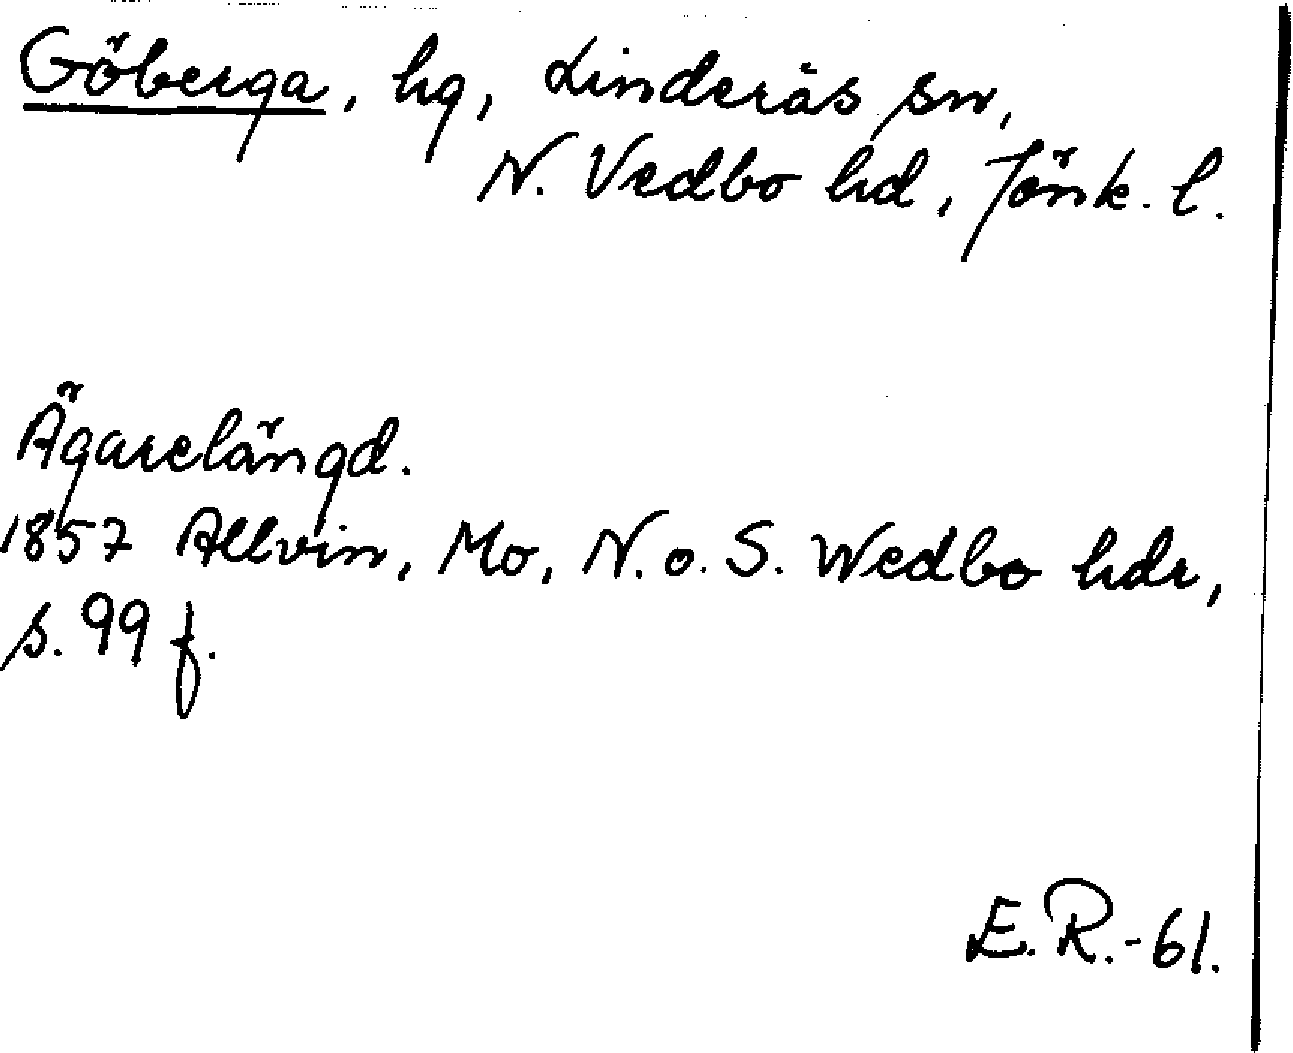 Göberga, hg, Linderås sn,
N. Vedbo hd, Jönk. l.
Ägarelängd.
1857 Allvin, Mo, N. o. S. Wedbo hdr,
s. 99 f.
E. R. - 61.